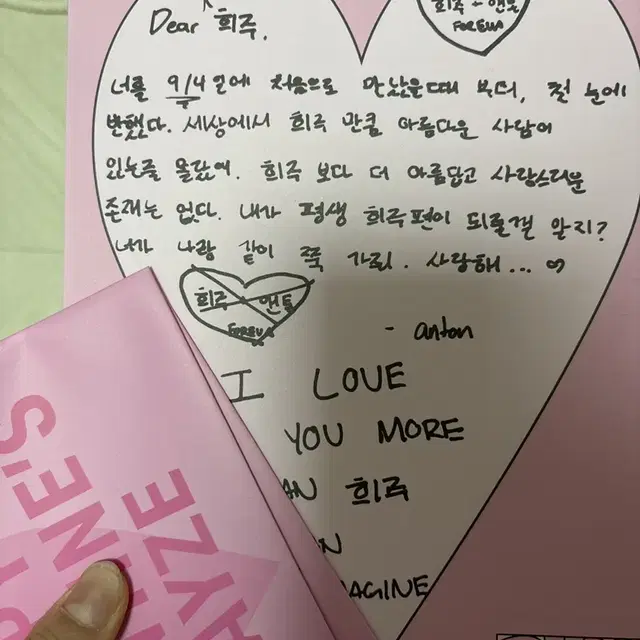 희주 - 앤톤
FOREVA
Dear 희주,
너를 9/4 일에 처음으로 만났을때 부터, 첫 눈에
반했다. 세상에서 희주 만큼 아름다운 사람이
있는줄 몰랐어. 희주 보다 더 아름답고 사랑스러운
존재는 없다. 내가 평생 희주편이 되줄껄 알지?
나랑 같이 쭉 사랑해... ♡
희주 앤톤
FOREVA
- anton
I LOVE
YOU MORE
AN 희주
N
AGINE
NE'S
HYZE